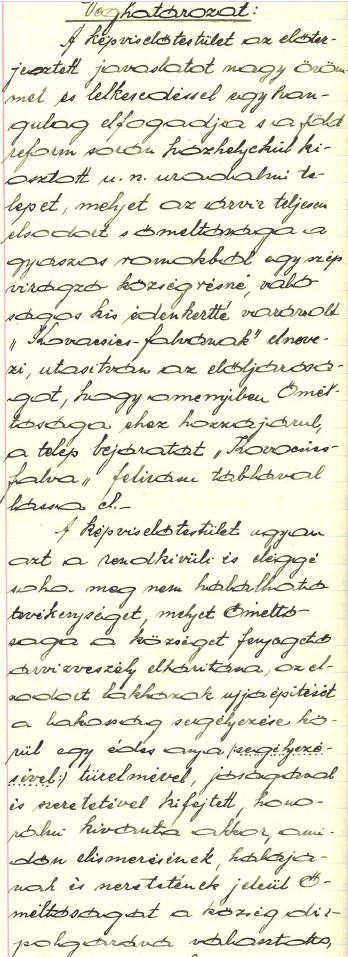 Véghatározat:
A képviselőtestület az előter-
jesztett javaslatot nagy öröm-
mel és lelkesedéssel egyhan-
gulag elfogadja s a föld
reform során házhelyekül ki-
osztott u. n. uradalmi te-
lepet, melyet az árvíz teljesen
elsodort s őméltósága a
gyászos romokból egy szép
virágzó községrésné, való
ságos kis édenkertté varázsolt
„Kovacsics-falvának" elneve-
zi, utasitván az elöljárósá-
got, hogy amennyiben Őmél-
tósága ehez hozzájárul,
a telep bejáratát „Kovacsics-
falva„ felirásu táblával
lássa el.-
A képviselőtestület ugyan
azt a rendkívüli és eléggé
soha meg nem hálálható
tevékenységet, melyet Őméltó-
sága a községet fenyegető
árvízveszély elhárítása, az el-
sodort lakházak ujjáépitését
a lakosság segélyezése kö-
rül egy édes anya /:segélyezé-
sével:/ türelmével, jóságával
és szeretetével kifejtett, hono-
rálni kivánta akkor, ami-
dőn elismerésének, hálájá-
nak és szeretetének jeléül Ő-
méltóságát a község disz-
polgárává választotta,